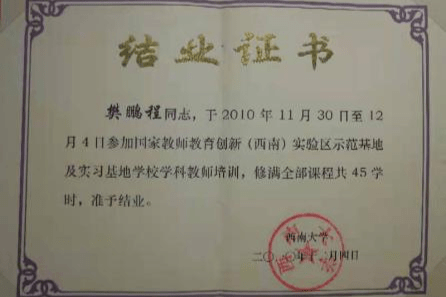 结业证书
樊鹏程同志，于2010年11月30日至12
月4日参加国家教师教育创新（西南）实验区示范基地
及实习基地学校学科教师培训，修满全部课程共45学
时，准予结业。
西南大学
二〇一〇年十二月四日